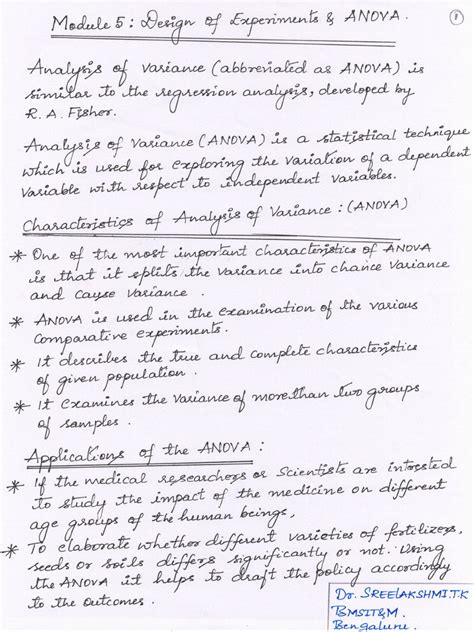 Module 5 : Design of Experiments & ANOVA.
1
Analysis of variance (abbreviated as ANOVA) is
similar to the regression analysis, developed by
R. A. Fisher.
Analysis of Variance (ANOVA) is a statistical technique
which is used for exploring the variation of a dependent
variable with respect to independent variables.
Characteristics of Analysis of Variance : (ANOVA)
* One of the most important characteristics of ANOVA
is that it splits the variance into chance variance
and cause variance.
* ANOVA is used in the examination of the various
comparative experiments.
* It describes the true and complete characteristics
of given population.
* It examines the variance of more than two groups
of samples.
Applications of the ANOVA :
* If the medical researchers or Scientists are intrested
to study the impact of the medicine on different
age groups of the human beings,
* To elaborate whether different varieties of fertilizers,
seeds or soils differs significantly or not. Using
the ANOVA it helps to draft the policy accordingly
to the outcomes.
Dr. SREELAKSHMI.T.K
BMSIT&M.
Bengaluru.